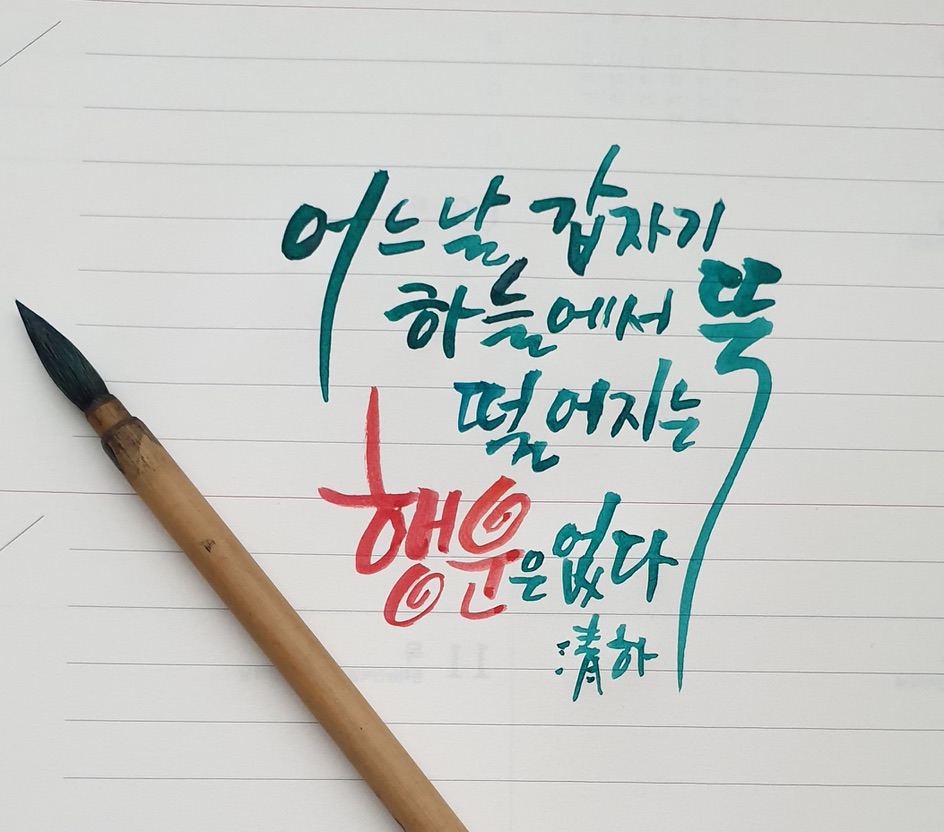 어느날 갑자기
하늘에서 뚝
떨어지는
행운은 없다
清하